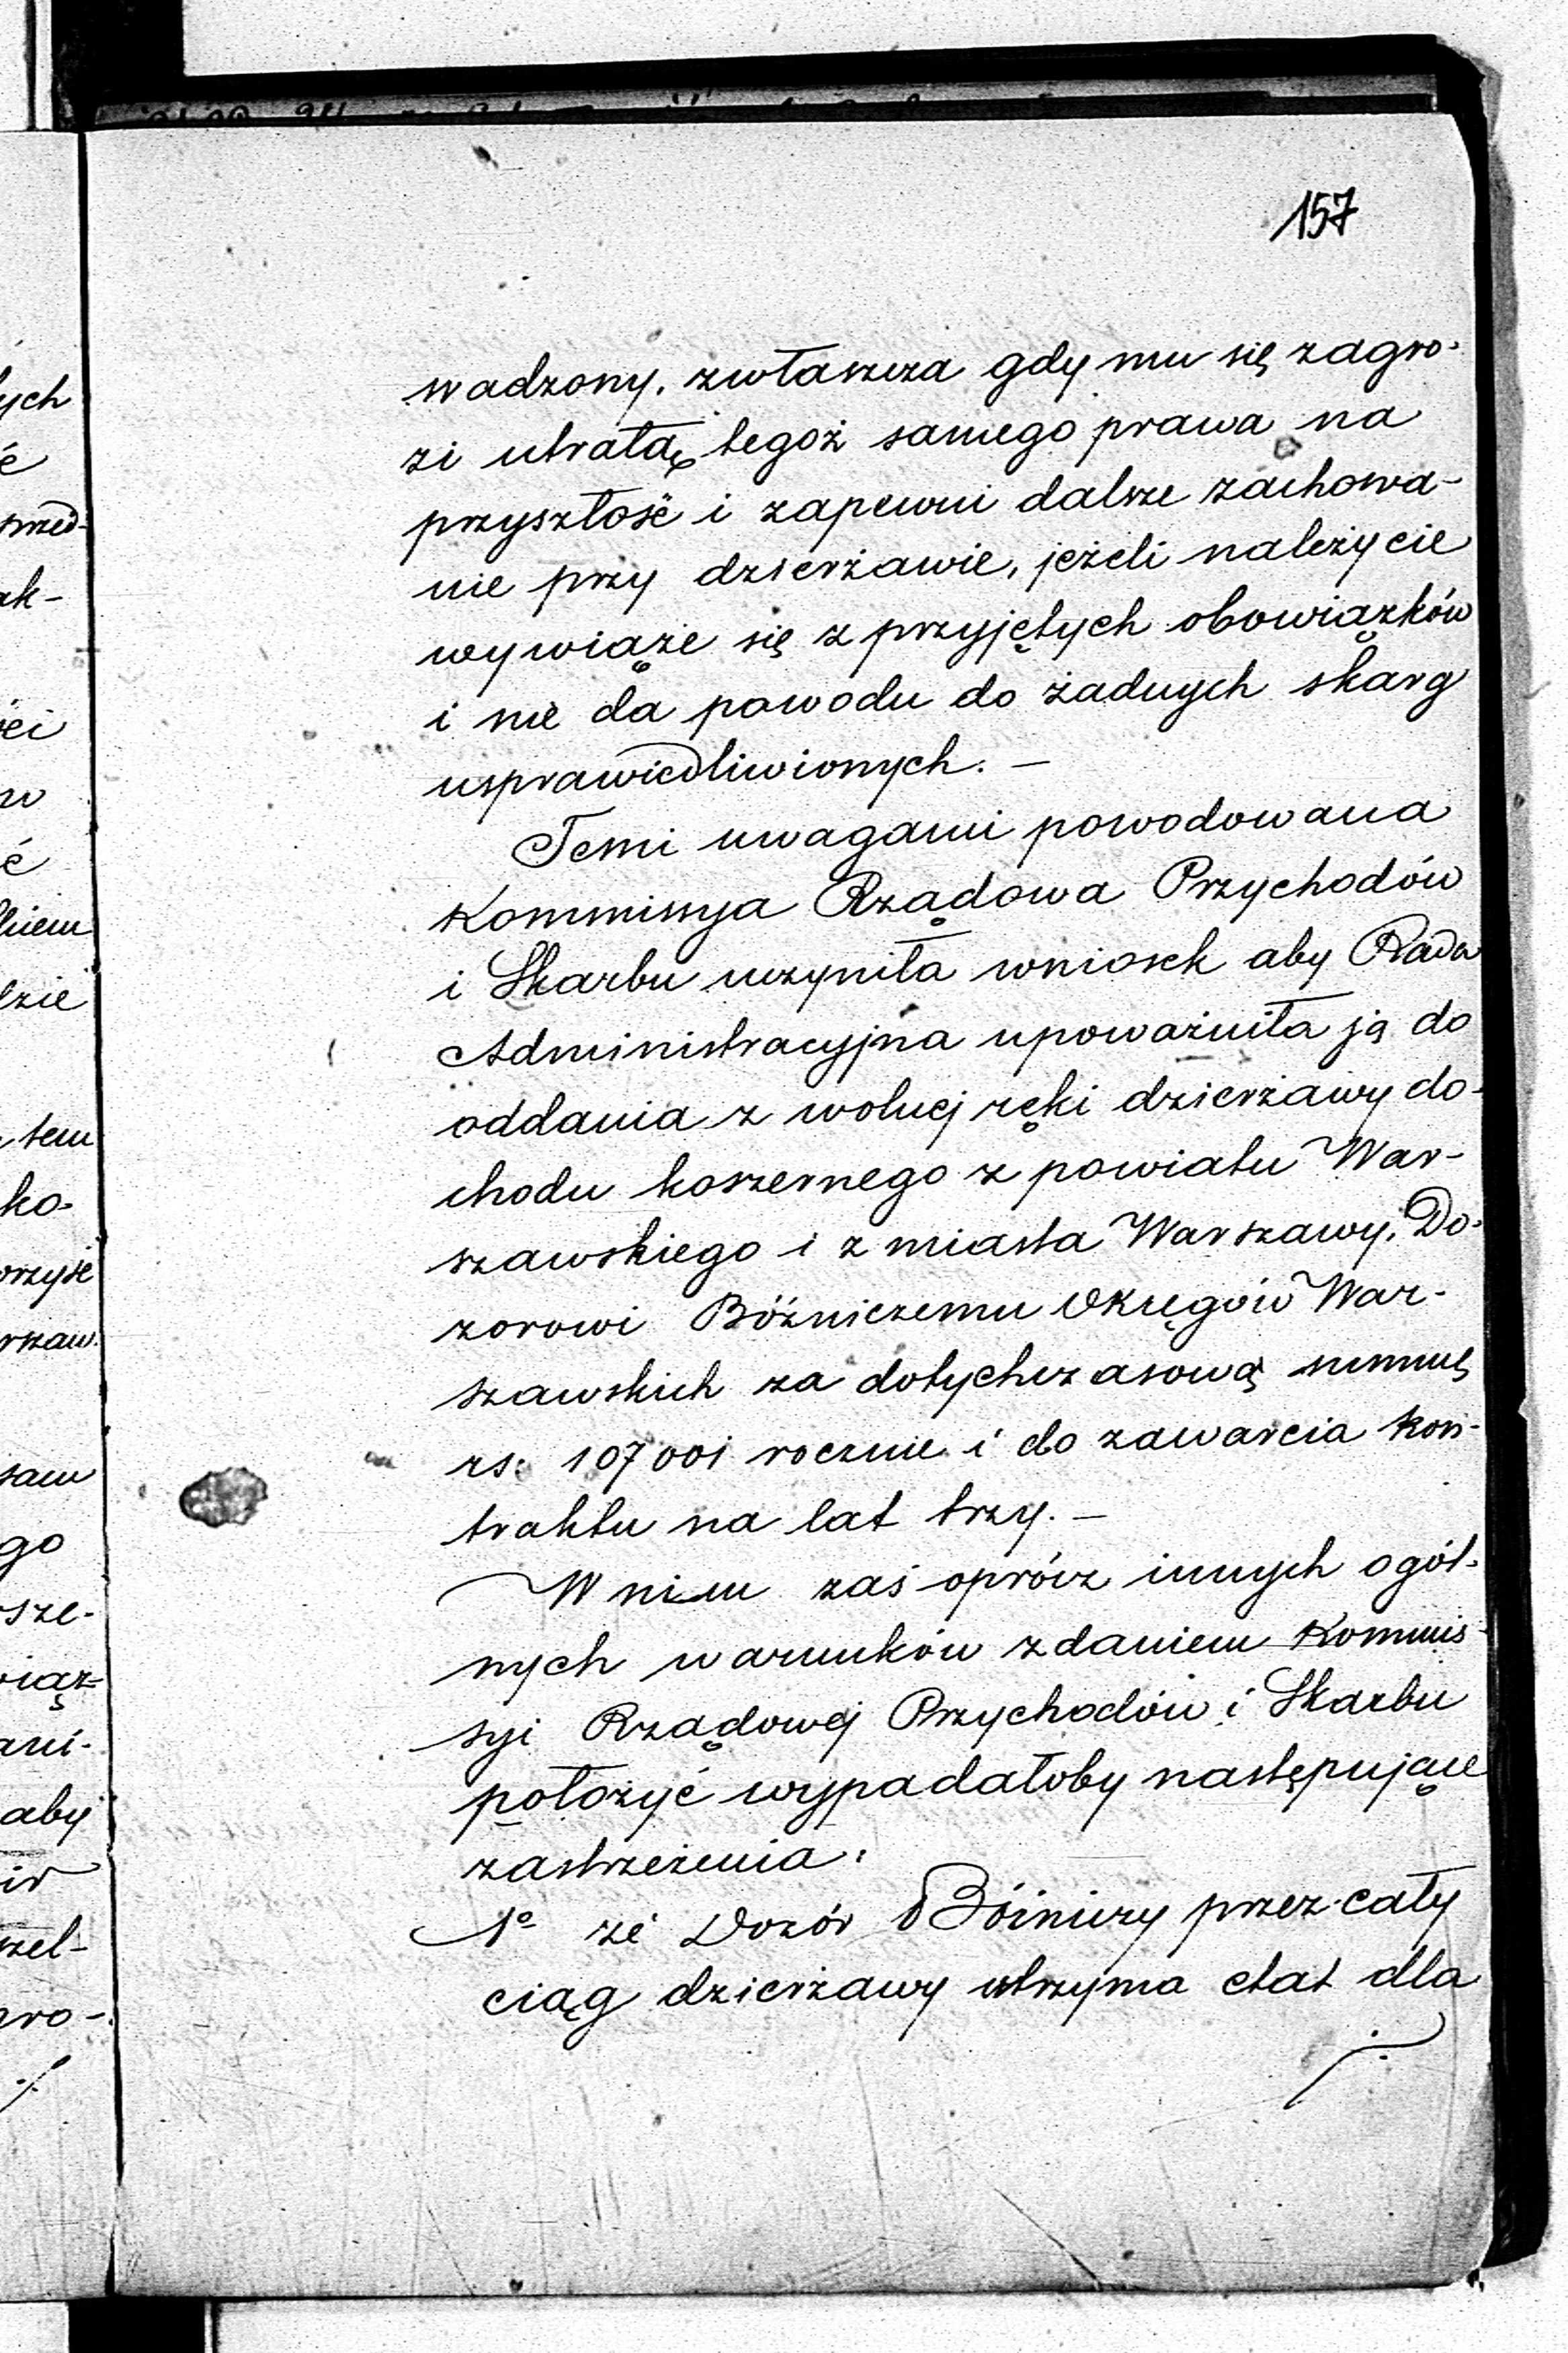 157
wadzony. zwłaszcza gdy mu się zagro-
zi utratą tegoż samego prawa na
przyszłość i zapewni dalsze zachowa-
nie przy dzierżawie, jeżeli należycie
wywiąże się z przyjętych obowiązków
i nie da powodu do żadnych skarg
usprawiedliwionych. —
Temi uwagami powodowana
Kommissya Rządowa Przychodów
i Skarbu uczyniła wniosek aby Rada
Administracyjna upoważniła ją do
oddania z wolnej ręki dzierżawy do-
chodu koszernego z powiatu War-
szawskiego i z miasta Warszawy, Do-
zorowi Bóżniczemu Okręgów War-
szawskich za dotychczasową summę
rs: 107001 rocznie i do zawarcia kon-
traktu na lat trzy. —
W nim zaś oprócz innych ogól-
nych warunków zdaniem Kommis-
syi Rządowej Przychodów i Skarbu
położyć wypadałoby następujące
zastrzeżenia:
1º że Dozór Bóżniczy przez cały
ciąg dzierżawy utrzyma etat dla
./.
ych
ć
przed-
ak-
ści
ć
dzie
tem
ko-
orzyść
rszaw.
sam
go
sze-
wiąz-
ani-
aby
zel-
pro-
./.